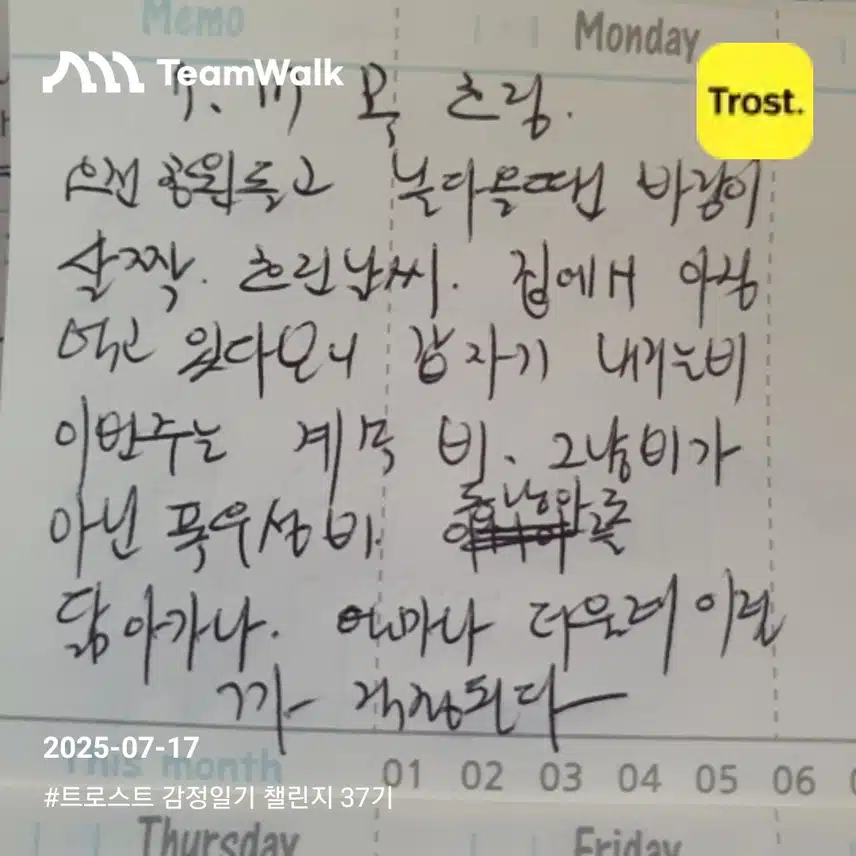 Memo
Monday
TeamWalk
Trost.
7. 17 목 흐림.
오전 공원돌고 바람이
살짝. 흐린날씨. 집에서 아침
먹고 있다보니 갑자기 내리는비
이번주는 계속 비. 그냥비가
아닌 폭우성 비. 동남아를
닮아가나. 얼마나 더울려 이럴
까 걱정된다
2025-07-17
This month
01 02 03 04 05 06
#트로스트 감정일기 챌린지 37기
Thursday
Friday